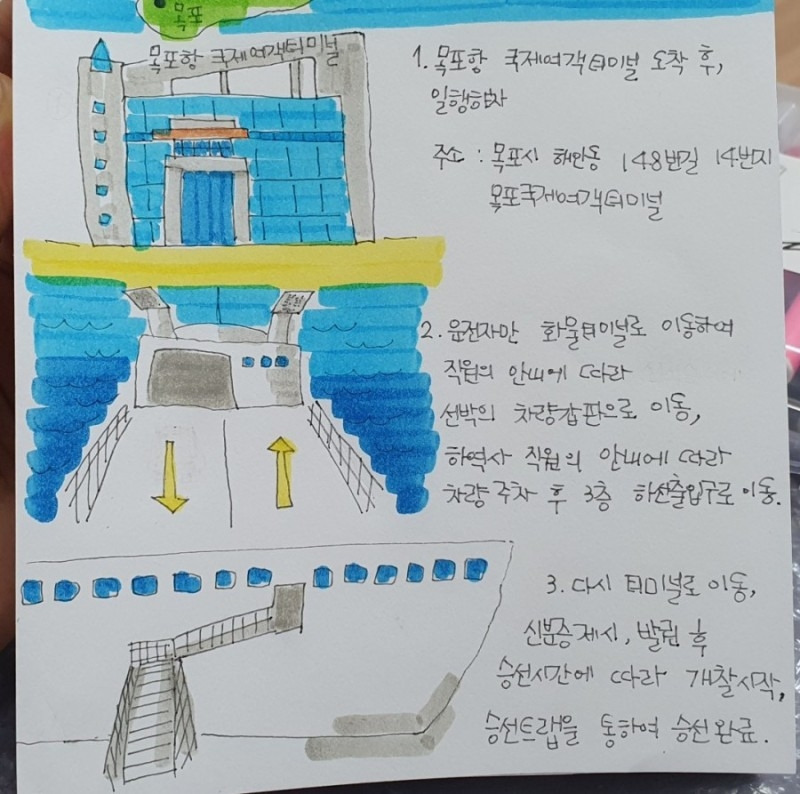 목포
목포항 국제여객터미널
1. 목포항 국제여객터미널 도착 후,
일행하차
주소 : 목포시 해안동 148번길 14번지
목포국제여객터미널
2. 운전자만 화물터미널로 이동하여
직원의 안내에 따라
선박의 차량갑판으로 이동,
하역사 직원의 안내에 따라
차량 주차 후 3층 하선출입구로 이동.
3. 다시 터미널로 이동,
신분증제시, 발권 후
승선시간에 따라 개찰시작,
승선트랩을 통하여 승선완료.